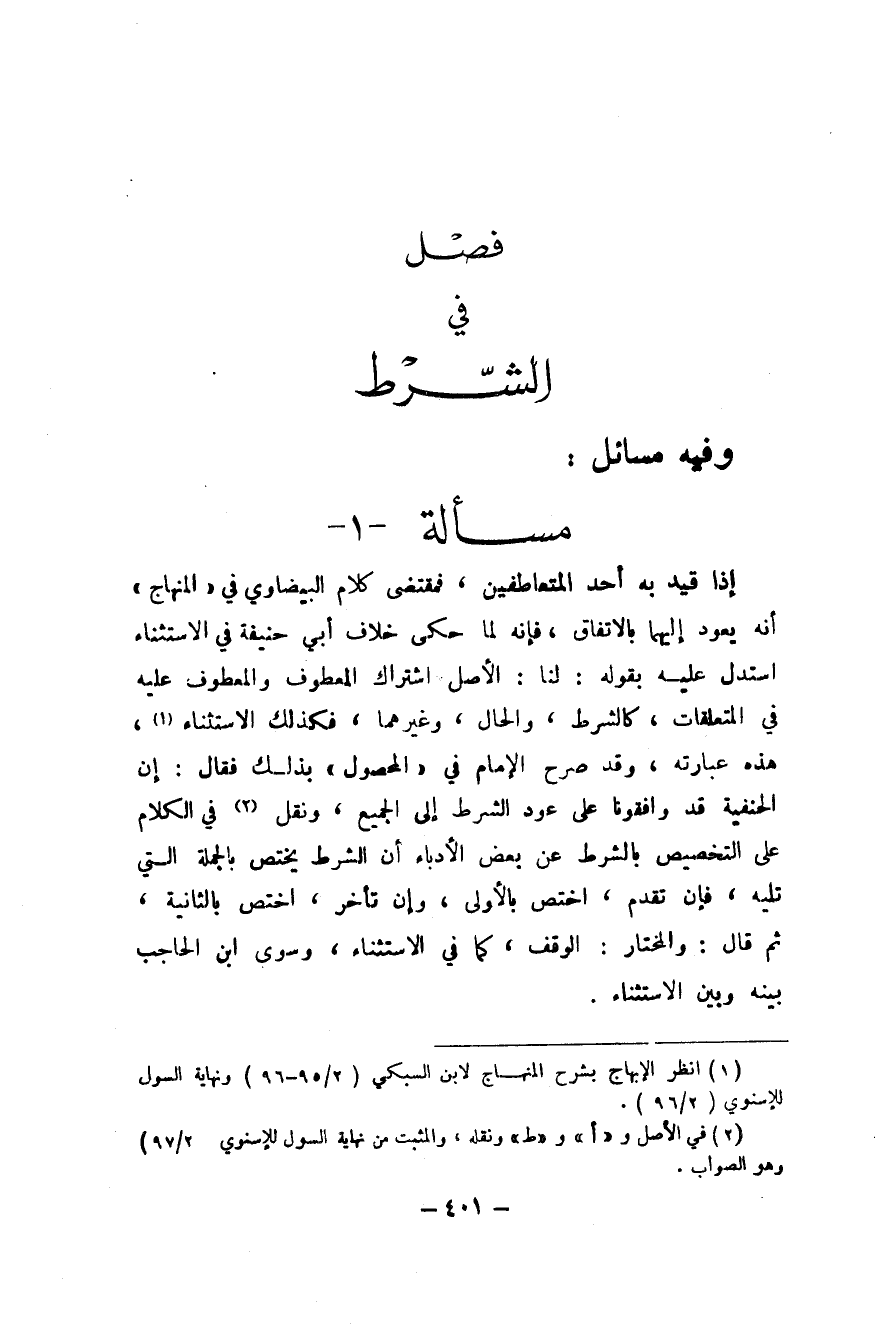 فصْـل
في
الشّـرْط
وفيه مسائل :
مسـألة -١-
إذا قيد به أحد المتعاطفين ، فمقتضى كلام البيضاوي في « المنهاج »
أنه يعود إليهما بالاتفاق ، فإنه لما حكى خلاف أبي حنيفة في الاستثناء
استدل عليـه بقوله : لنا : الأصل اشتراك المعطوف والمعطوف عليه
في المتعلقات ، كالشرط ، والحال ، وغيرهما ، فكذلك الاستثناء (١) ،
هذه عبارته ، وقد صرح الإمام في « المحصول » بذلـك فقال : إن
الحنفية قد وافقونا على عود الشرط إلى الجميع ، ونقل (٢) في الكلام
على التخصيص بالشرط عن بعض الأدباء أن الشرط يختص بالجملة الـتي
تليه ، فإن تقدم ، اختص بالأولى ، وإن تأخر ، اختص بالثانية ،
ثم قال : والمختار : الوقف ، كما في الاستثناء ، وسوى ابن الحاجب
بينه وبين الاستثناء .
(١) انظر الإبهاج بشرح المنهـاج لابن السبكي ( ٢/٩٥-٩٦ ) ونهاية السول
للإسنوي ( ٢/٩٦ ) .
(٢) في الأصل و « أ » و « ط » ونقله ، والمثبت من نهاية السول للإسنوي ٢/٩٧ )
وهو الصواب .
– ٤٠١ –